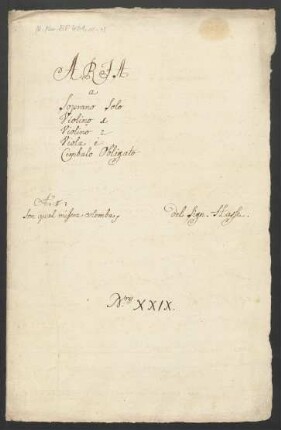 ARIA
a
Soprano Solo
Violino 1
Violino 2
Viola è
Cimbalo Obligato
Son qual misera Colomba,
del Sigr. Hasse.
Nro XXIX.